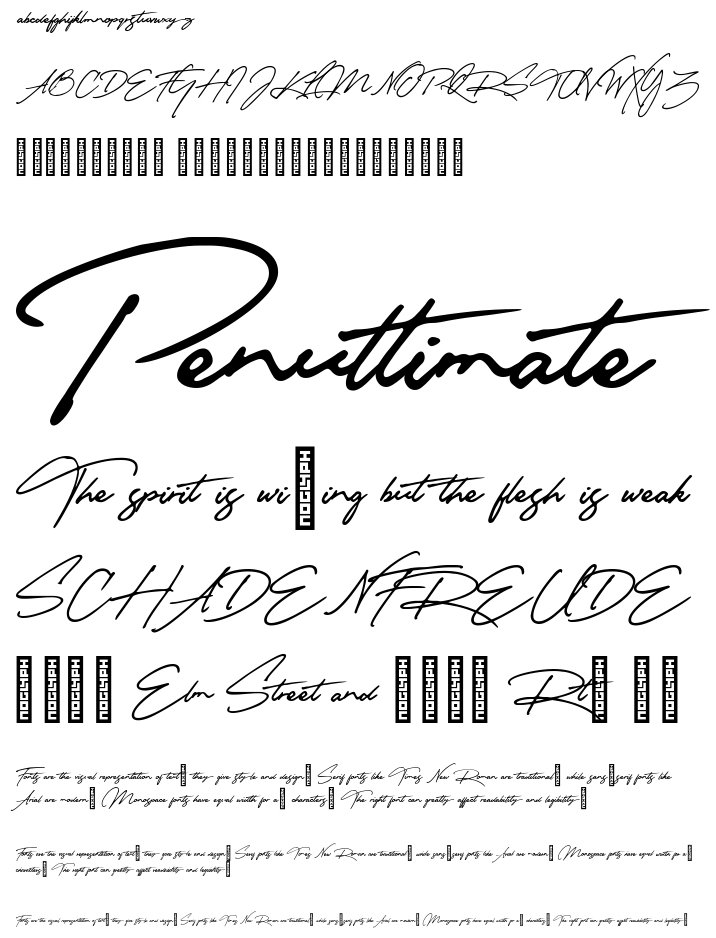 abcdefghijklmnopqrstuvwxyz
ABCDEFGHIJKLMNOPQRSTUVWXYZ
NOGLYPH NOGLYPH NOGLYPH NOGLYPH NOGLYPH NOGLYPH NOGLYPH NOGLYPH NOGLYPH NOGLYPH NOGLYPH NOGLYPH NOGLYPH NOGLYPH NOGLYPH NOGLYPH NOGLYPH NOGLYPH NOGLYPH NOGLYPH NOGLYPH NOGLYPH NOGLYPH NOGLYPH NOGLYPH NOGLYPH NOGLYPH NOGLYPH
Penultimate
The spirit is wi NOGLYPH ing but the flesh is weak
SCHADENFREUDE
NOGLYPH NOGLYPH NOGLYPH NOGLYPH Elm Street and NOGLYPH NOGLYPH NOGLYPH NOGLYPH Rt NOGLYPH NOGLYPH NOGLYPH
Fonts are the visual representation of text they give style and design Serif fonts like Times New Roman are traditional while sans serif fonts like
Arial are modern Monospace fonts have equal width for a characters The right font can greatly affect readability and legibility
Fonts are the visual representation of text they give style and design Serif fonts like Times New Roman are traditional while sans serif fonts like Arial are modern Monospace fonts have equal width for a
characters The right font can greatly affect readability and legibility
Fonts are the visual representation of text they give style and design Serif fonts like Times New Roman are traditional while sans serif fonts like Arial are modern Monospace fonts have equal width for a characters The right font can greatly affect readability and legibility